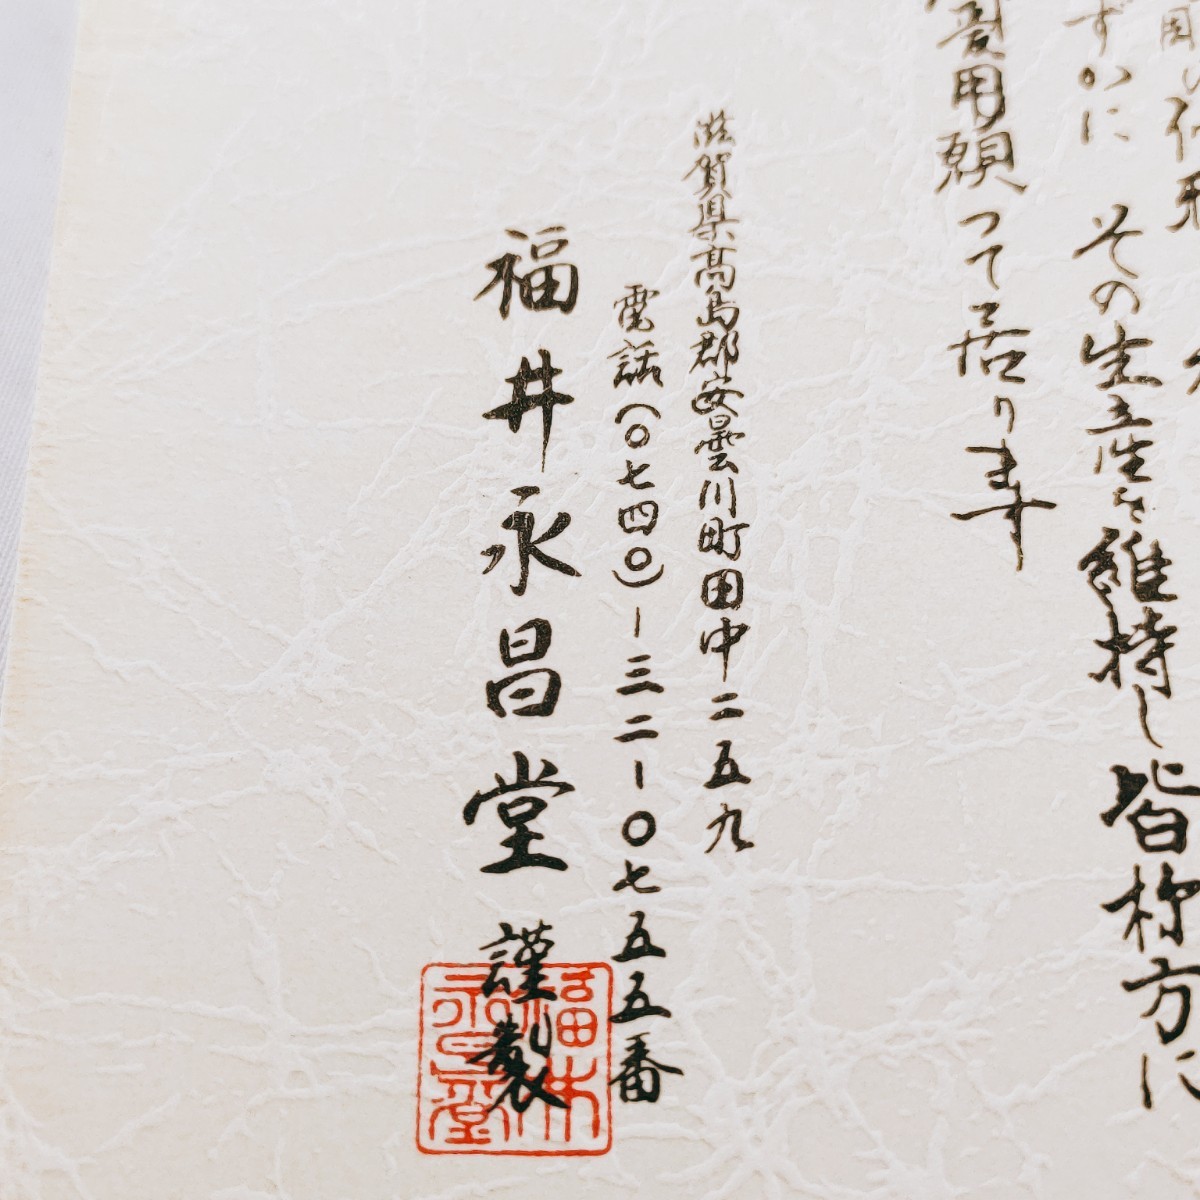 ずかに その生立性を維持し皆称方に
愛用願って居ります
滋賀県高島郡安曇川町田中二五九
電話(〇七四〇)-三二-〇七五五番
福井永昌堂 謹製